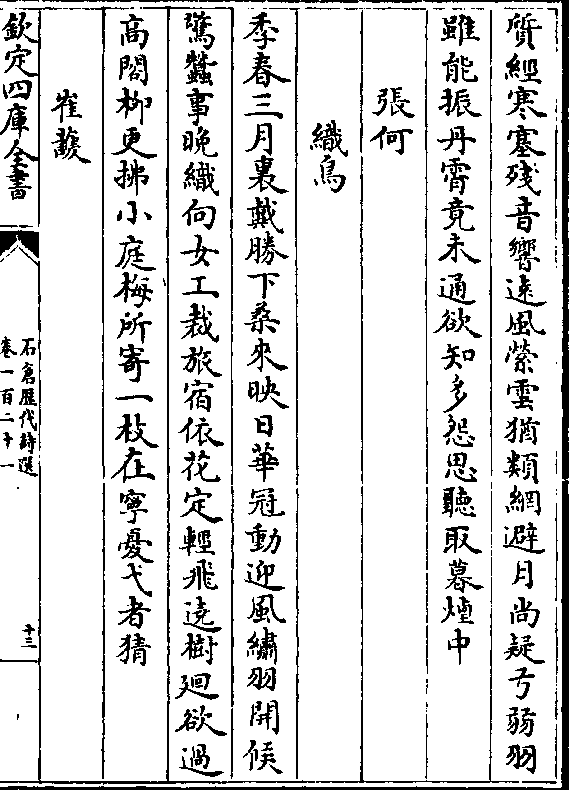 質經寒塞殘音響遠風縈雲猶類網避月尚疑弓弱羽
雖能振丹霄竟未通欲知多怨思聽取暮煙中
張何
織鳥
季春三月裏戴勝下桑來映日華冠動迎風繡羽開候
驚蠶事晚織向女工裁旅宿依花定輕飛遶樹廻欲過
髙閣柳更拂小庭梅所寄一枝在寧憂弋者猜
崔護
欽定四庫全書
石倉歷代詩選
卷一百二十一
十三